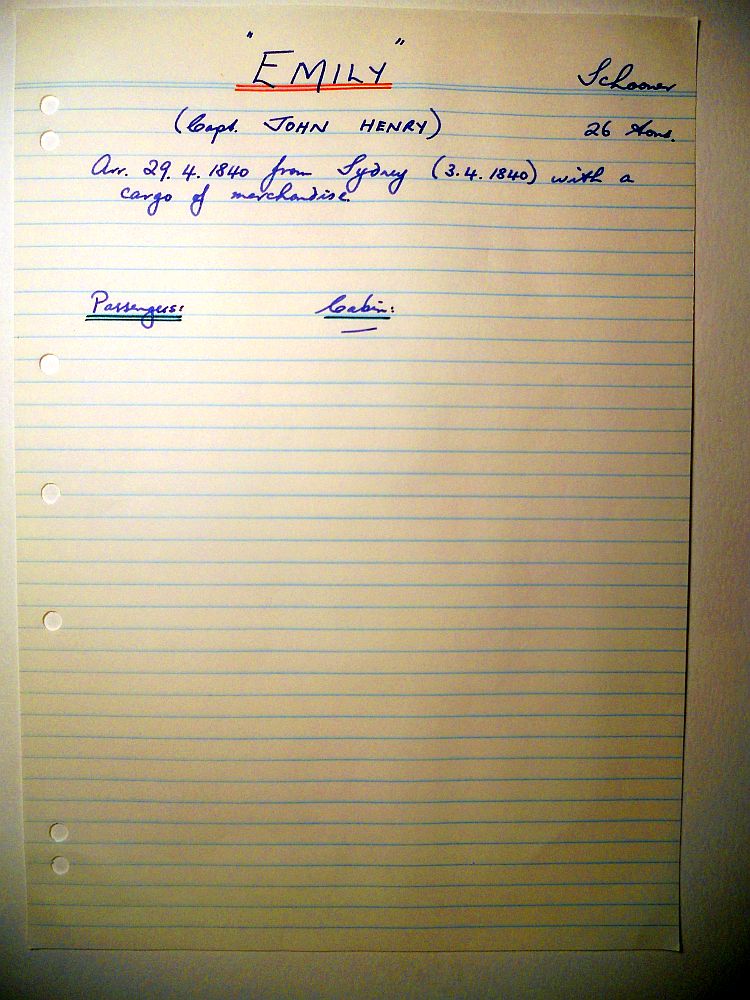 "EMILY" Schooner
(Capt. JOHN HENRY) 26 tons.
Arr. 29.4.1840 from Sydney (3.4.1840) with a
cargo of merchandise.
Passengers: Cabin:
—